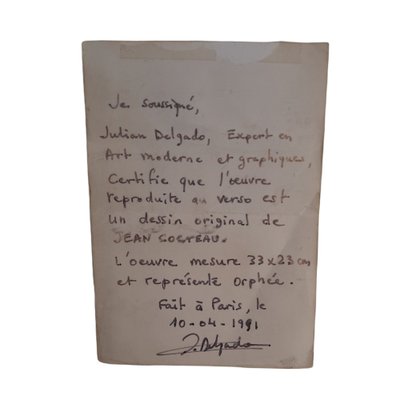 Je soussigné,
Julian Delgado, Expert en
Art moderne et graphiques,
Certifie que l'œuvre
reproduite au verso est
un dessin original de
JEAN COCTEAU.
L'oeuvre mesure 33x23 cm
et représente Orphée.
Fait à Paris, le
10-04-1991
J. Delgado